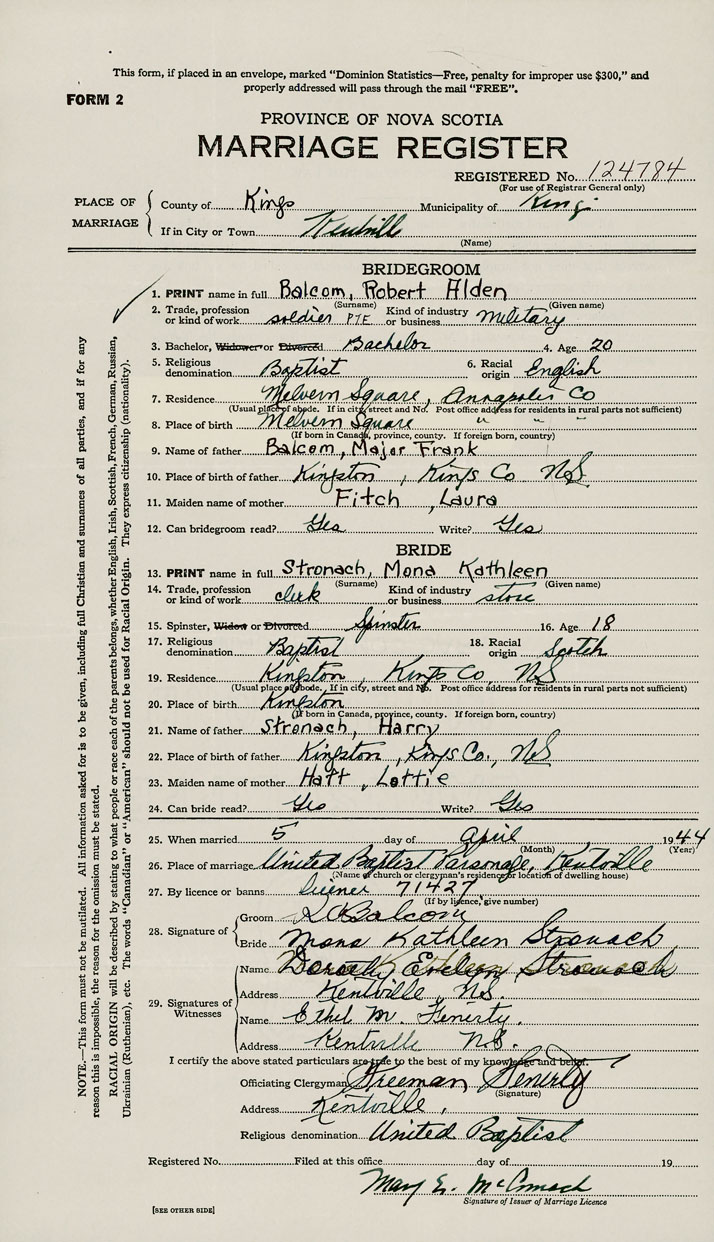 This form, if placed in an envelope, marked "Dominion Statistics—Free, penalty for improper use $300," and
properly addressed will pass through the mail "FREE".
FORM 2
PROVINCE OF NOVA SCOTIA
MARRIAGE REGISTER
REGISTERED No. 124784
(For use of Registrar General only)
PLACE OF MARRIAGE
County of Kings Municipality of Kings
If in City or Town Kentville
(Name)
BRIDEGROOM
1. PRINT name in full Balcom, Robert Alden
(Surname) (Given name)
2. Trade, profession or kind of work soldier PTE Kind of industry or business military
3. Bachelor, Widower or Divorced Bachelor 4. Age 20
5. Religious denomination Baptist 6. Racial origin English
7. Residence Melvern Square, Annapolis Co
(Usual place of abode. If in city, street and No. Post office address for residents in rural parts not sufficient)
8. Place of birth Melvern Square " " "
(If born in Canada, province, county. If foreign born, country)
9. Name of father Balcom, Major Frank
10. Place of birth of father Kingston, Kings Co NS
11. Maiden name of mother Fitch, Laura
12. Can bridegroom read? Yes Write? Yes
BRIDE
13. PRINT name in full Stronach, Mona Kathleen
(Surname) (Given name)
14. Trade, profession or kind of work clerk Kind of industry or business store
15. Spinster, Widow or Divorced Spinster 16. Age 18
17. Religious denomination Baptist 18. Racial origin Scotch
19. Residence Kingston, Kings Co, NS
(Usual place of abode. If in city, street and No. Post office address for residents in rural parts not sufficient)
20. Place of birth Kingston
(If born in Canada, province, county. If foreign born, country)
21. Name of father Stronach, Harry
22. Place of birth of father Kingston, Kings Co., NS
23. Maiden name of mother Hatt, Lottie
24. Can bride read? Yes Write? Yes
25. When married 5 day of April 1944
(Month) (Year)
26. Place of marriage United Baptist Parsonage, Kentville
(Name of church or clergyman's residence or location of dwelling house)
27. By licence or banns license 71427
(If by licence, give number)
28. Signature of
Groom R A Balcom
Bride Mona Kathleen Stronach
29. Signatures of Witnesses
Name Dorothy Evelyn Stronach
Address Kentville, N.S.
Name Ethel M. Fenerty.
Address Kentville N.S.
I certify the above stated particulars are true to the best of my knowledge and belief.
Officiating Clergyman Freeman Fenerty
(Signature)
Address Kentville,
Religious denomination United Baptist
Registered No. Filed at this office day of 19
Mary E. McCormack
Signature of Issuer of Marriage Licence
[SEE OTHER SIDE]
NOTE.—This form must not be mutilated. All information asked for is to be given, including full Christian and surnames of all parties, and if for any
reason this is impossible, the reason for the omission must be stated.
RACIAL ORIGIN will be described by stating to what people or race each of the parents belongs, whether English, Irish, Scottish, French, German, Russian,
Ukrainian (Ruthenian), etc. The words "Canadian" or "American" should not be used for Racial Origin. They express citizenship (nationality).